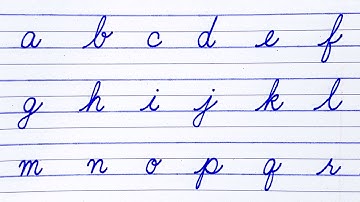 a b c d e f
g h i j k l
m n o p q r